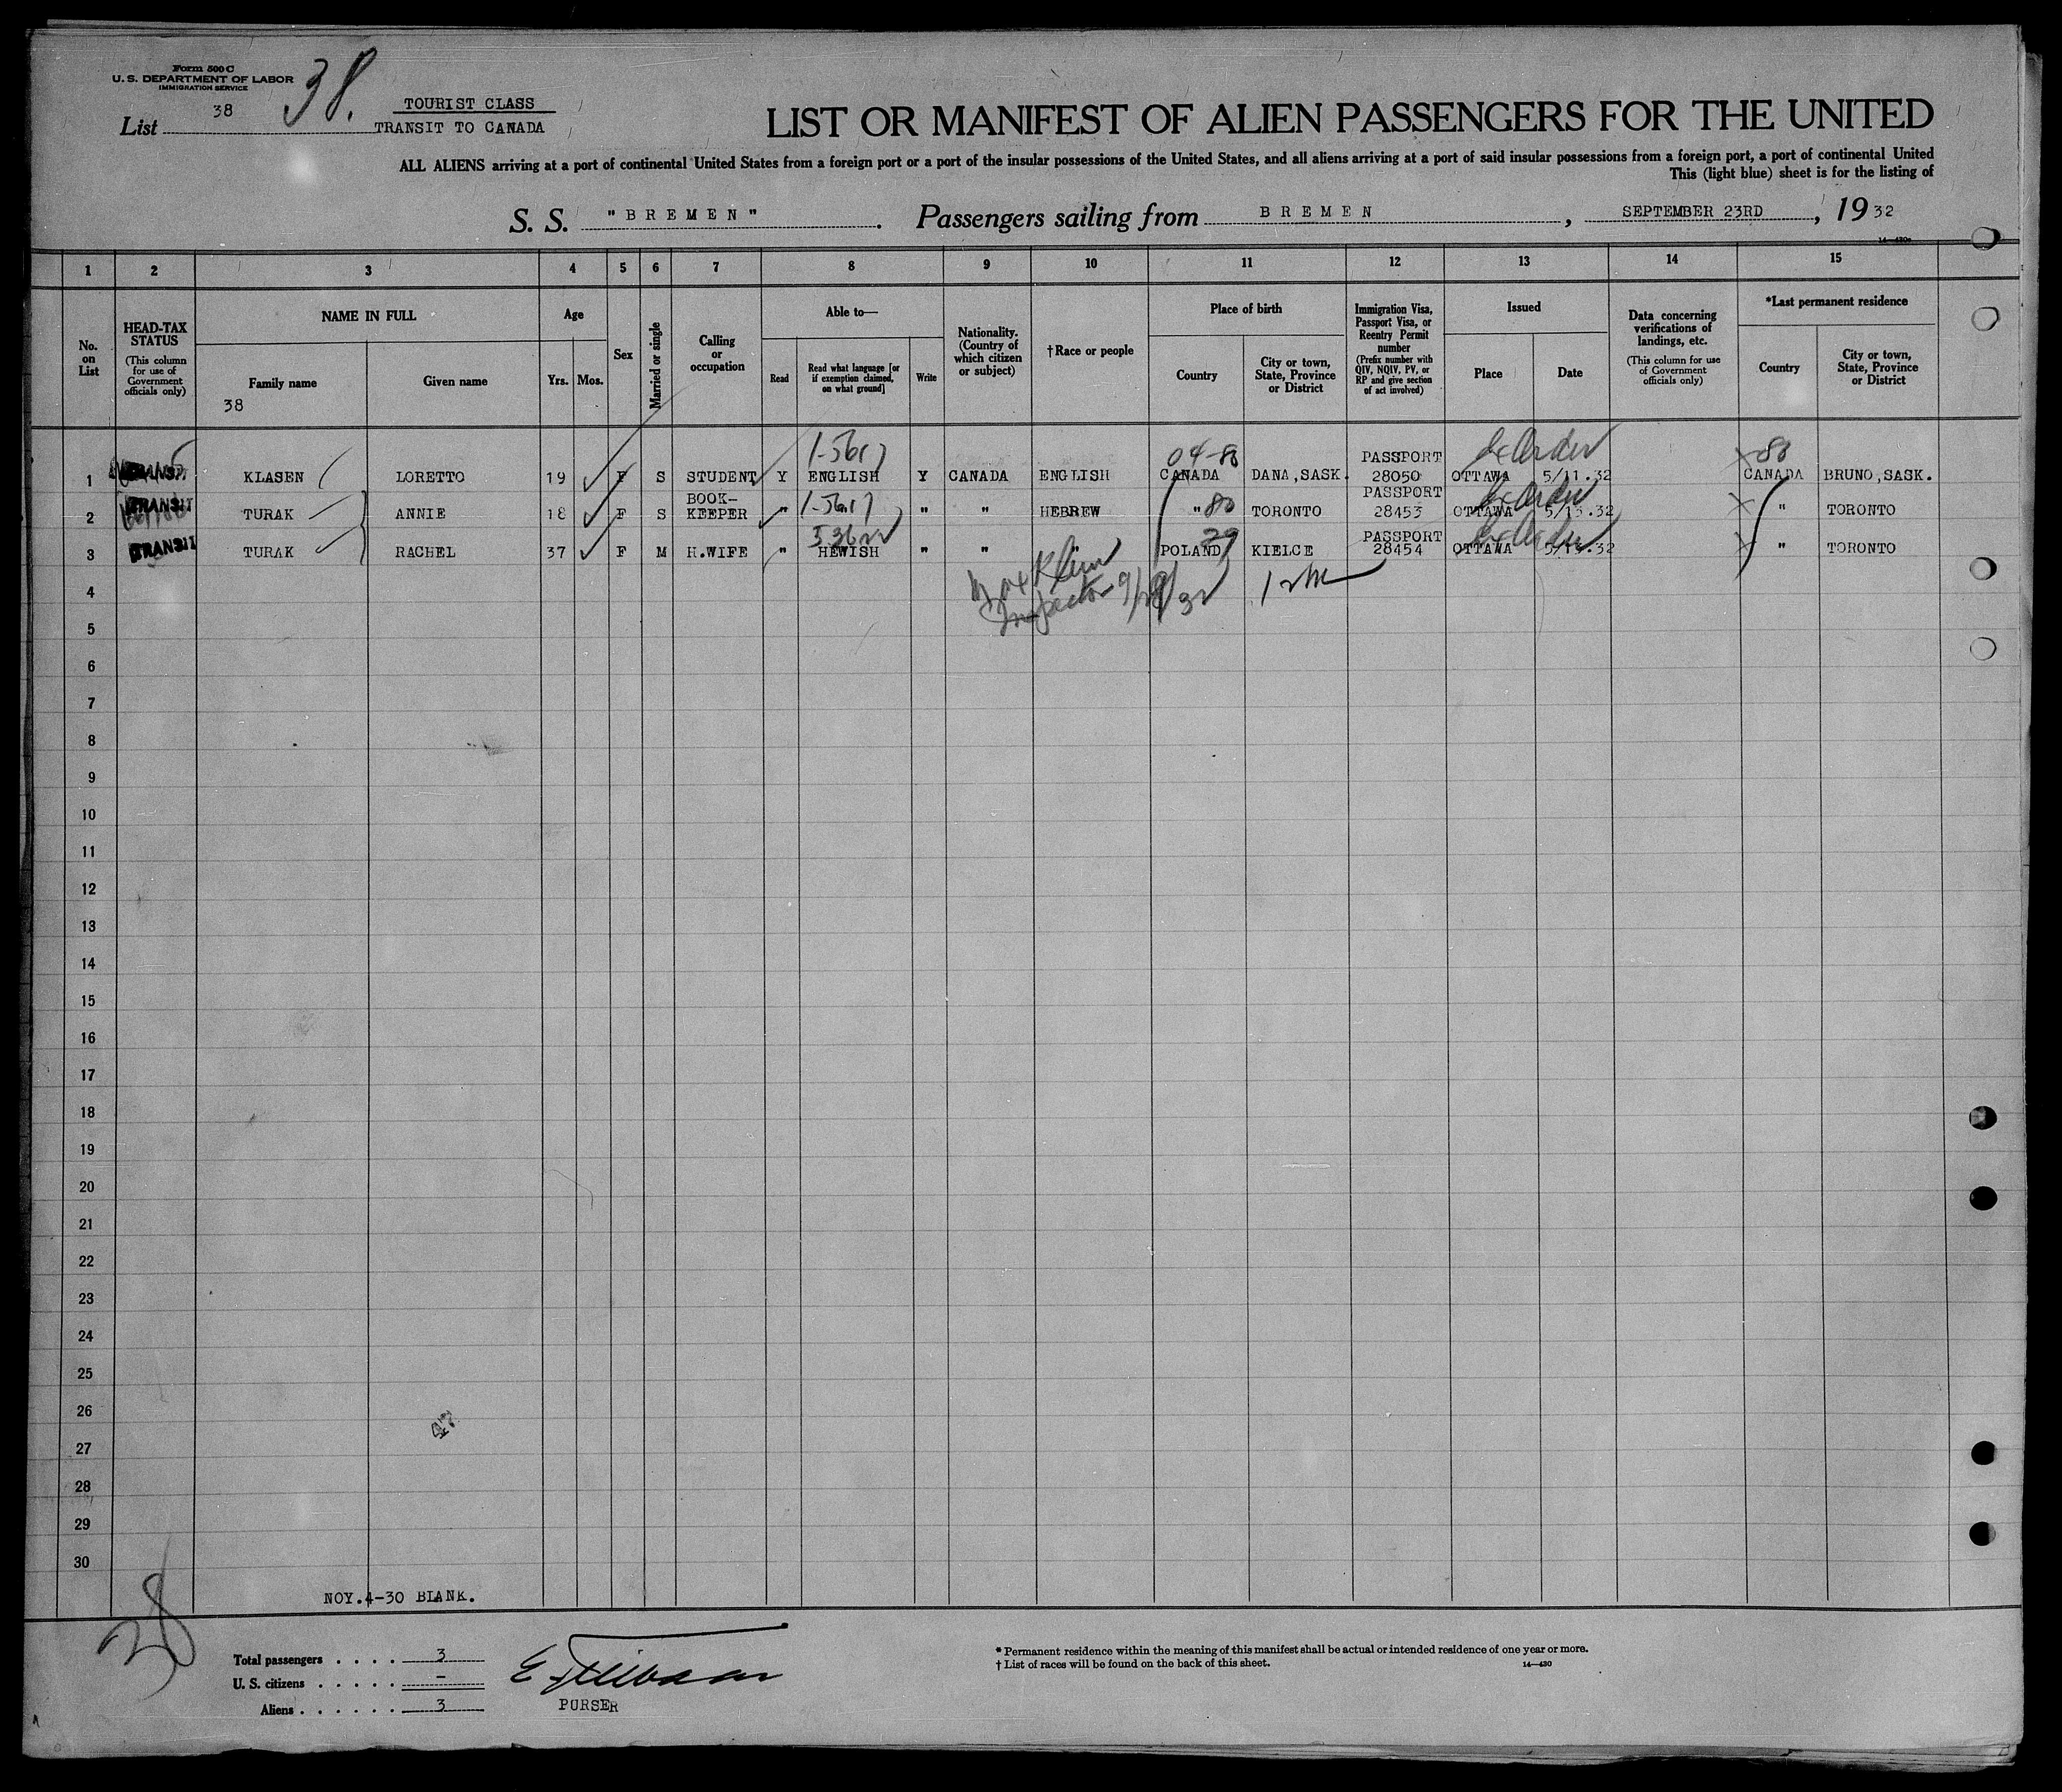 Form 500 C
U. S. DEPARTMENT OF LABOR
IMMIGRATION SERVICE
List 38
38.
TOURIST CLASS
TRANSIT TO CANADA
LIST OR MANIFEST OF ALIEN PASSENGERS FOR THE UNITED
ALL ALIENS arriving at a port of continental United States from a foreign port or a port of the insular possessions of the United States, and all aliens arriving at a port of said insular possessions from a foreign port, a port of continental United
This (light blue) sheet is for the listing of
S. S. "BREMEN". Passengers sailing from BREMEN, SEPTEMBER 23RD, 1932
1 2 3 4 5 6 7 8 9 10 11 12 13 14 15
No. on List
HEAD-TAX STATUS (This column for use of Government officials only)
NAME IN FULL
Family name
Given name
38
Age
Yrs. Mos.
Sex
Married or single
Calling or occupation
Able to—
Read
Read what language [or if exemption claimed, on what ground]
Write
Nationality. (Country of which citizen or subject)
†Race or people
Place of birth
Country
City or town, State, Province or District
Immigration Visa, Passport Visa, or Reentry Permit number (Prefix number with QIV, NQIV, PV, or RP and give section of act involved)
Issued
Place
Date
Data concerning verifications of landings, etc. (This column for use of Government officials only)
*Last permanent residence
Country
City or town, State, Province or District
1-5617 04-80 PASSPORT 80
1 KLASEN LORETTO 19 F S STUDENT Y ENGLISH Y CANADA ENGLISH CANADA DANA,SASK. 28050 OTTAWA 5/11.32 CANADA BRUNO,SASK.
TRANSIT BOOK- 1-5617 80 PASSPORT
2 TURAK ANNIE 18 F S KEEPER " " " HEBREW " TORONTO 28453 OTTAWA 5/13.32 " TORONTO
TRANSIT 29 PASSPORT
3 TURAK RACHEL 37 F M H.WIFE " HEWISH " " " POLAND KIELCE 28454 OTTAWA " TORONTO
Max Klein
Inspector 9/29/32
4
5
6
7
8
9
10
11
12
13
14
15
16
17
18
19
20
21
22
23
24
25
26
27
28
29
30
NOY.4-30 BLANK.
38
Total passengers . . . . 3
U. S. citizens . . . . . —
Aliens . . . . . . 3
PURSER
* Permanent residence within the meaning of this manifest shall be actual or intended residence of one year or more.
† List of races will be found on the back of this sheet.
14—430